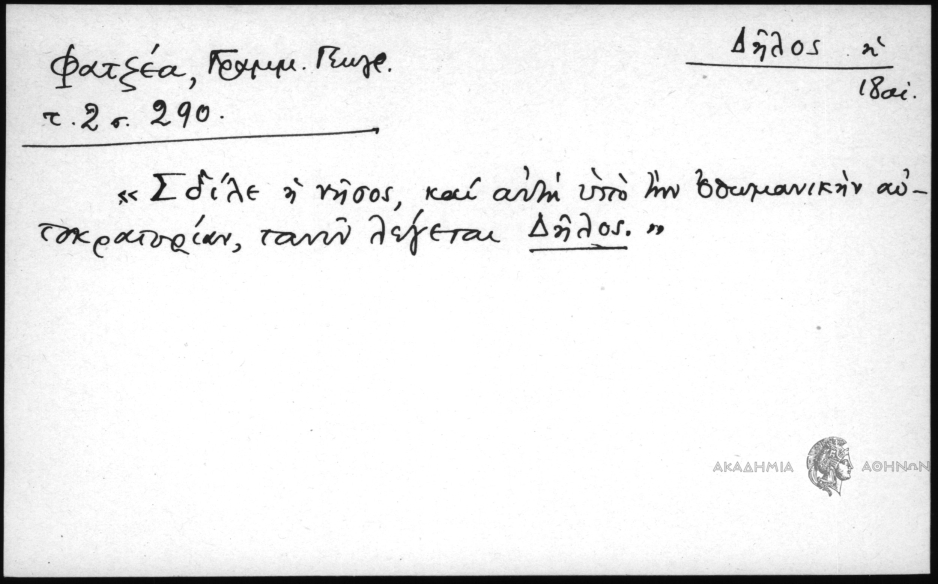 Δῆλος ἡ
18 αἰ.
Φατζέα, Γραμμ. Γεωγρ.
τ. 2 σ. 290.
« Σδίλε ἡ νῆσος, καί αὐτή ὑπὸ τὴν ὀθωμανικὴν αὐ-
τοκρατορίαν, τανῦν λέγεται Δῆλος. »
ΑΚΑΔΗΜΙΑ ΑΘΗΝΩΝ